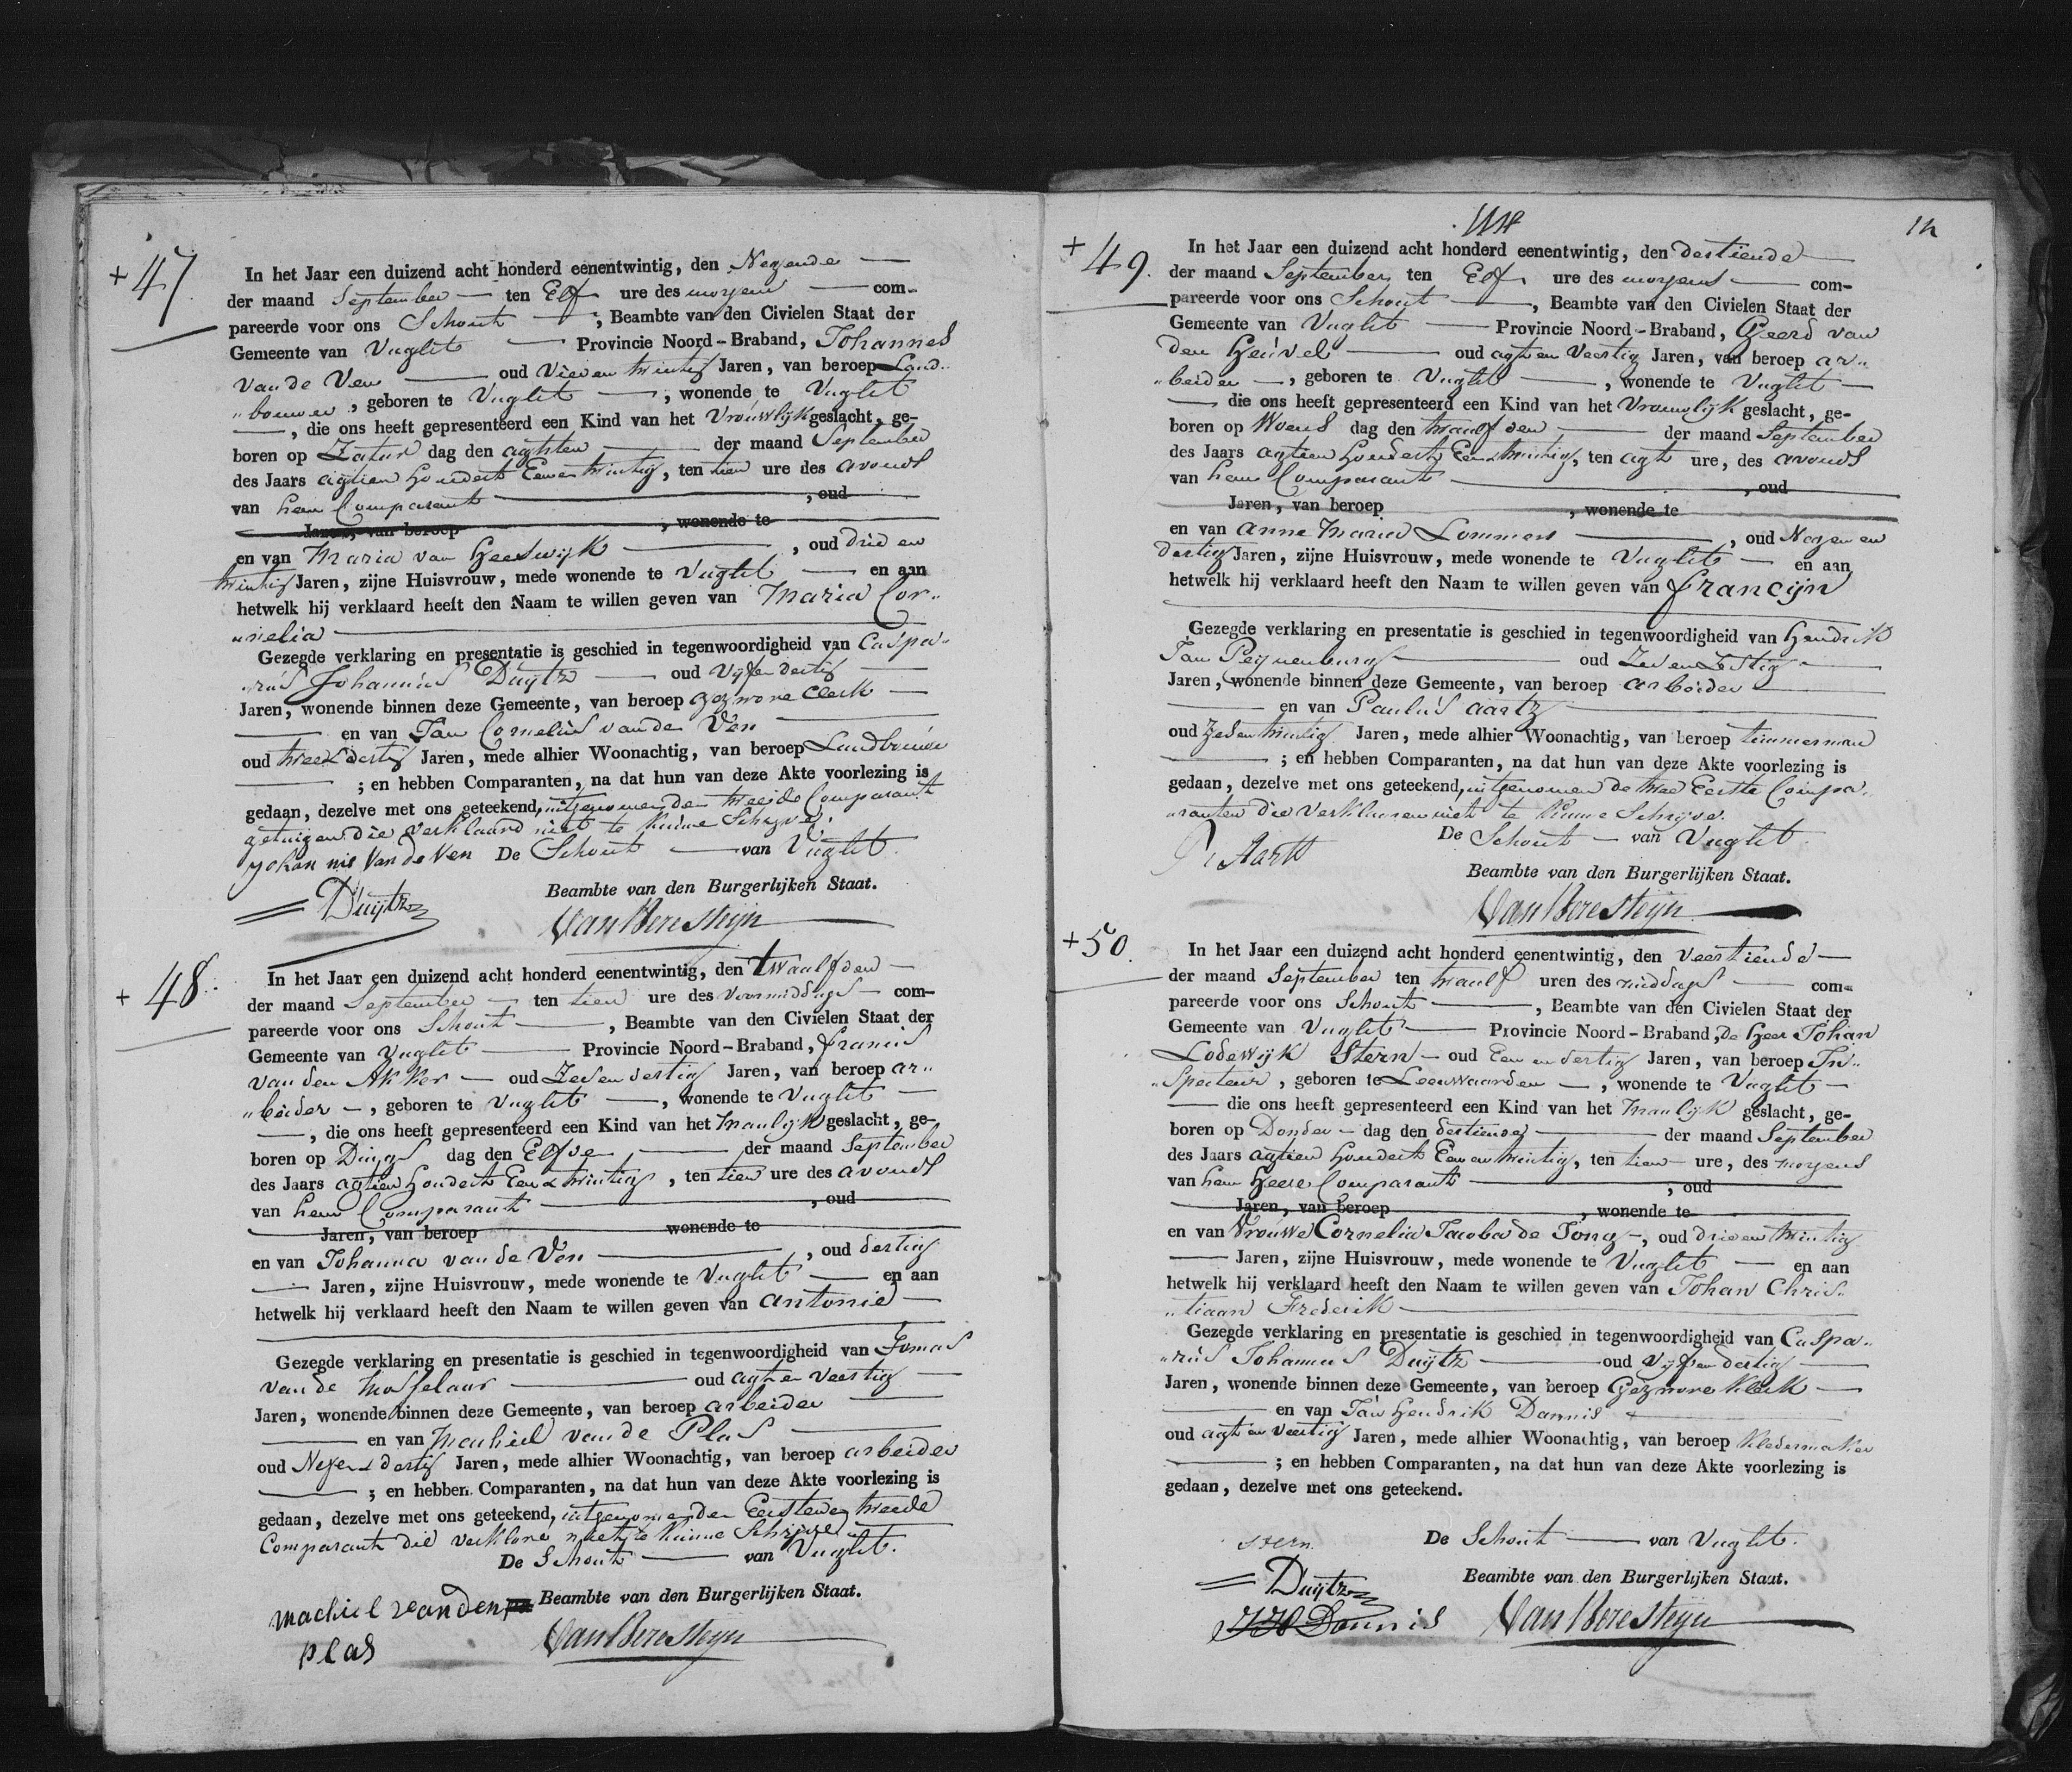 + 47
In het Jaar een duizend acht honderd eenentwintig, den Negende
der maand September ten Elf ure des morgens com-
pareerde voor ons Schout, Beambte van den Civielen Staat der
Gemeente van Vught Provincie Noord-Braband, Johannes
van de Ven oud Vier en twintig Jaren, van beroep Land„
„bouwer, geboren te Vught, wonende te Vught
, die ons heeft gepresenteerd een Kind van het Vrouwlijk geslacht, ge-
boren op Zatur dag den agtsten der maand September
des Jaars agtien Hondert Eenentwintig, ten tien ure des avonds
van hem Comparant, oud
Jaren, van beroep, wonende te
en van Maria van Heeswijk, oud drie en
twintig Jaren, zijne Huisvrouw, mede wonende te Vught en aan
hetwelk hij verklaard heeft den Naam te willen geven van Maria Cor„
„nelia
Gezegde verklaring en presentatie is geschied in tegenwoordigheid van Caspa„
„rus Johannes Duijtz oud Vijfendertig
Jaren, wonende binnen deze Gemeente, van beroep gezwore Clerk
en van Jan Cornelis van de Ven
oud twee & dertig Jaren, mede alhier Woonachtig, van beroep Landbouwer
; en hebben Comparanten, na dat hun van deze Akte voorlezing is
gedaan, dezelve met ons geteekend, uitgenomen den tweede Comparant
getuigen die verklaard niet te kunne Schrijve.
johan nis van de ven De Schout van Vught.
Beambte van den Burgerlijken Staat.
Duijtz
Van Beresteijn
+ 48.
In het Jaar een duizend acht honderd eenentwintig, den twaalfden
der maand September ten tien ure des voormiddags com-
pareerde voor ons Schout, Beambte van den Civielen Staat der
Gemeente van Vught Provincie Noord-Braband, Francis
van den Akker oud Zes en dertig Jaren, van beroep ar„
„beider, geboren te Vught, wonende te Vught
, die ons heeft gepresenteerd een Kind van het Manlijk geslacht, ge-
boren op Dings dag den Elfve der maand September
des Jaars agtien Hondert Een & twintig, ten tien ure des avonds
van hem Comparant, oud
Jaren, van beroep wonende te
en van Johanna van de Ven, oud dertig
Jaren, zijne Huisvrouw, mede wonende te Vught en aan
hetwelk hij verklaard heeft den Naam te willen geven van Antonie
Gezegde verklaring en presentatie is geschied in tegenwoordigheid van Tomas
van de Mosselaar oud agt en veertig
Jaren, wonende binnen deze Gemeente, van beroep arbeider
en van Machiel van de Plas
oud Negen & dertig Jaren, mede alhier Woonachtig, van beroep arbeider
; en hebben Comparanten, na dat hun van deze Akte voorlezing is
gedaan, dezelve met ons geteekend, uitgenomen den Eersten en tweede
Comparant die verklare niet te kunne Schrijve
De Schout van Vught.
Beambte van den Burgerlijken Staat.
machiel van den
plas
Van Beresteijn
12
+ 49.
In het Jaar een duizend acht honderd eenentwintig, den dertiende
der maand September ten Elf ure des morgens com-
pareerde voor ons Schout, Beambte van den Civielen Staat der
Gemeente van Vught Provincie Noord-Braband, Geerd van
den Heuvel oud agt en Veertig Jaren, van beroep ar„
„beider, geboren te Vught, wonende te Vught
die ons heeft gepresenteerd een Kind van het Vrouwlijk geslacht, ge-
boren op Woens dag den twaalfden der maand September
des Jaars agtien Hondert Een & twintig, ten agt ure, des avonds
van hem Comparant, oud
Jaren, van beroep, wonende te
en van Anne Maria Lommers, oud Negen en
dertig Jaren, zijne Huisvrouw, mede wonende te Vught en aan
hetwelk hij verklaard heeft den Naam te willen geven van Francijn
Gezegde verklaring en presentatie is geschied in tegenwoordigheid van Hendrik
Jan Peijnenburg oud Zes en Zestig
Jaren, wonende binnen deze Gemeente, van beroep arbeider
en van Paulus Aartz
oud Zes en twintig Jaren, mede alhier Woonachtig, van beroep timmerman
; en hebben Comparanten, na dat hun van deze Akte voorlezing is
gedaan, dezelve met ons geteekend, uitgenomen de twee Eerste Compa„
„ranten die verklaaren niet te kunne Schrijve.
De Schout van Vught
Beambte van den Burgerlijken Staat.
Van Beresteijn
+ 50.
In het Jaar een duizend acht honderd eenentwintig, den veertiende
der maand September ten twaalf uren des middags com-
pareerde voor ons Schout, Beambte van den Civielen Staat der
Gemeente van Vught Provincie Noord-Braband, De Heer Johan
Lodewijk Stern oud Een en dertig Jaren, van beroep In„
„specteur, geboren te Leeuwaarden, wonende te Vught
die ons heeft gepresenteerd een Kind van het Manlijk geslacht, ge-
boren op Donder dag den dertiende der maand September
des Jaars agtien hondert Een en twintig, ten tien ure, des morgens
van hem Heere Comparant, oud
Jaren, van beroep, wonende te
en van Vrouwe Cornelia Jacoba de Jong, oud drie en twintig
Jaren, zijne Huisvrouw, mede wonende te Vught en aan
hetwelk hij verklaard heeft den Naam te willen geven van Johan Chris„
„tiaan Frederik
Gezegde verklaring en presentatie is geschied in tegenwoordigheid van Caspa„
„rus Johannes Duijtz oud Vijf en dertig
Jaren, wonende binnen deze Gemeente, van beroep Gezwore Klerk
en van Jan Hendrik Dannis
oud agt en veertig Jaren, mede alhier Woonachtig, van beroep Kledermaker
; en hebben Comparanten, na dat hun van deze Akte voorlezing is
gedaan, dezelve met ons geteekend.
De Schout van Vught.
Stern.
Beambte van den Burgerlijken Staat.
Duijtz
JH Dannis
Van Beresteijn